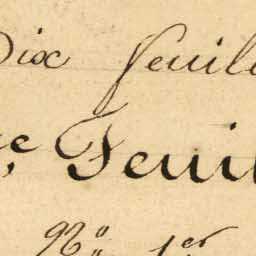 Dix feuil
e, Feuil
No 1er